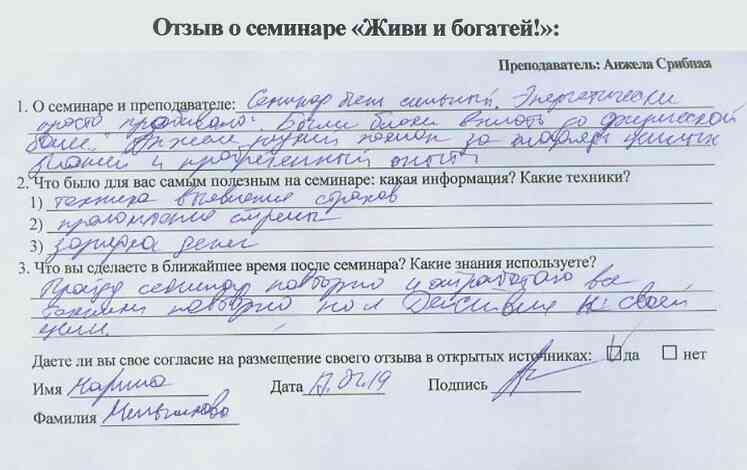 Отзыв о семинаре «Живи и богатей!»:
Преподаватель: Анжела Срибная
1. О семинаре и преподавателе: Семинар был сильный. Энергетически
просто пробивало. Были блоки вплоть до физической
боли. Анжеле низкий поклон за
знаний и опыт!
2. Что было для вас самым полезным на семинаре: какая информация? Какие техники?
1) техника выявления страхов
2) проломление стены
3) зарядка денег
3. Что вы сделаете в ближайшее время после семинара? Какие знания используете?
Пройду семинар повторно и отработаю все
техники повторно к своей
цели.
Даете ли вы свое согласие на размещение своего отзыва в открытых источниках: да нет
Имя Марина Дата Подпись
Фамилия Мельникова